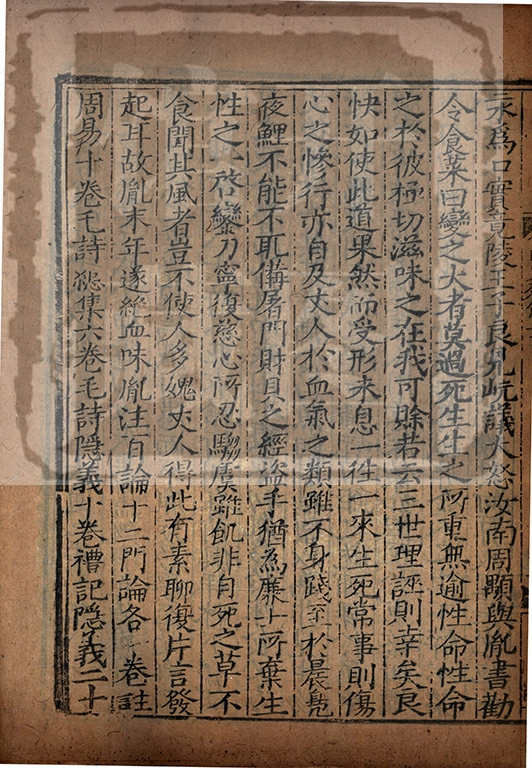 永爲口實竟陵王子良見岏議大怒汝南周顒與胤書勸
令食菜曰變之大者莫過死生生之所重無逾性命性命
之於彼極切滋味之在我可賖若云三世理誣則幸矣良
快如使此道果然而受形未息一徃一來生死常事則傷
心之慘行亦自及丈人於血氣之類雖不身踐至於晨鳬
夜鯉不能不取備屠門財貝之經盗手猶爲廉士所棄生
性之一啓鑾刀寧復慈心所忍騶虞雖飢非自死之草不
食聞其風者豈不使人多媿丈人得此有素聊復片言發
起耳故胤末年遂絶血味胤注百論十二門論各一卷註
周易十卷毛詩㹅集六卷毛詩隱義十卷禮記隱義二十